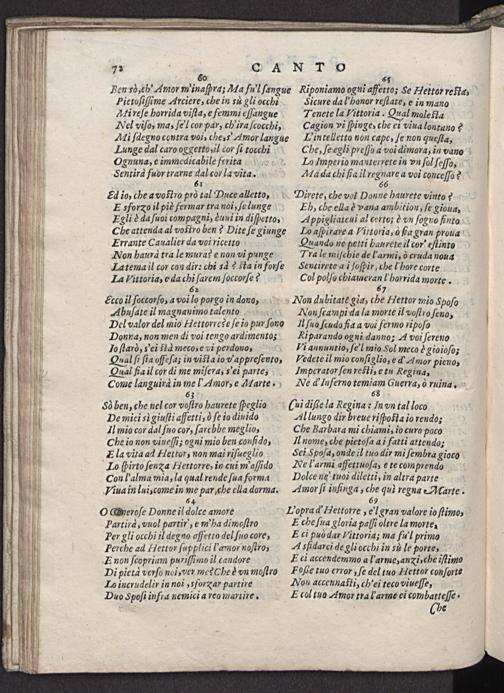 72
CANTO
60
Ben sò, ch'Amor m'inaspra; Ma fu'l sangue
Pietosissime Arciere, che in sù gli occhi
Mi rese horrida vista, e femmi essangue
Nel viso, ma, se'l cor par, ch'ira scocchi,
Mi sdegno contra voi, che, s'Amor langue
Lunge dal caro oggetto, il cor si tocchi
Ognuna, e immedicabile ferita
Sentirà fuor trarne dal cor la vita.
61
Ed io, che a vostro prò tal Duce alletto,
E sforzo il piè fermar tra noi, se lunge
Egli è da suoi compagni, è uui in dispetto,
Che attenda al vostro ben? Dite se giunge
Errante Caualier da voi ricetto
Non haurà tra le mura? e non vi punge
La tema il cor cou dir: chi sà? sta in forse
La Vittoria, e da chi sarem soccorse?
62
Ecco il soccorso, a voi lo porgo in dono,
Abusate il magnanimo talento
Del valor del mio Hettorre? e se io pur sono
Donna, non men di voi tengo ardimento;
Io starò, s'ei stà meco, e vi perdono,
Qual si sia offesa; in vista io v'appresento,
Qual sia il cor di me misera, s'ei parte,
Come languirà in me l'Amor, e Marte.
63
Sò ben, che nel cor vostro haurete speglio
De mici sì giusti affetti, ò se io diuido
Il mio cor dal suo cor, sarebbe meglio,
Che io non viuessi; ogni mio ben confido,
E la vita ad Hettor, non mai risueglio
Lo spirto senza Hettorre, in cui m'assido
Con l'alma mia, la qual rende sua forma
Viua in lui, come in me par, che ella dorma.
64
O Generose Donne il dolce amore
Partirà, vuol partir, e m'ha dimostro
Per gli occhi il degno affetto del suo core,
Perche ad Hettor supplici l'amor nostro,
E non scopriam purissimo il candore
Di pietà verso noi, ver me? Che è vn mostro
Lo incrudelir in noi, sforzar partire
Duo Sposi infra nemici a reo martire.
65
Riponiamo ogni affetto; Se Hettor resta,
Sicure da l'honor restate, e in mano
Tenete la Vittoria. Qual molesta
Cagion vi spinge, che ei viua lontano?
L'intelletto non cape, se non questa,
Che, se egli presso a voi dimora, in vano
Lo Imperio manterrete in vn sol sesso,
Ma da chi fia il regnare a voi concesso?
66
Direte, che vol Donne haurete vinto?
Eh, che ella è vana ambition, se gioua,
Appigliateui al certo; è vn sogno finto
Lo aspirare a Vittoria, ò fia gran proua
Quando ne petti haurete il cor' estinto
Tra le mischie de l'armi, ò cruda noua
Sentirete a i sospir, che l'hore corte
Col polso chiameran l'horrida morte.
67
Non dubitate già, che Hettor mio Sposo
Non scampi da la morte il vostro seno,
Il suo scudo fia a voi fermo riposo
Riparando ogni danno; A voi sereno
Vi annuntio, se'l mio Sol meco è gioioso;
Vedete il mio consiglio, e d'Amor pieno,
Imperator sen resti, e tu Regina,
Ne d'Inferno temiam Guerra, ò ruina.
68
Cui disse la Regina: In vn tal loco
Al lungo dir breue risposta io rendo;
Che Barbara mi chiami, io curo poco
Il nome, che pietosa a i fatti attendo;
Sei Sposa, onde il tuo dir mi sembra gioco
Ne l'armi affettuosa, e te comprendo
Dolce ne' tuoi diletti, in altra parte
Amor si infinga, che quì regna Marte.
69
L'opra d'Hettorre, e'l gran valore io stimo,
E che sua gloria passi oltre la morte,
E ci può dar Vittoria; ma fu'l primo
A sfidarci de gli occhi in sù le porte,
E ci accendemmo a l'arme, anzi, che istimo
Fosse tuo error, se del tuo Hettor consorte
Non accennasti, ch'ei teco viuesse,
E col tuo Amor tra l'arme ei combattesse.
Che